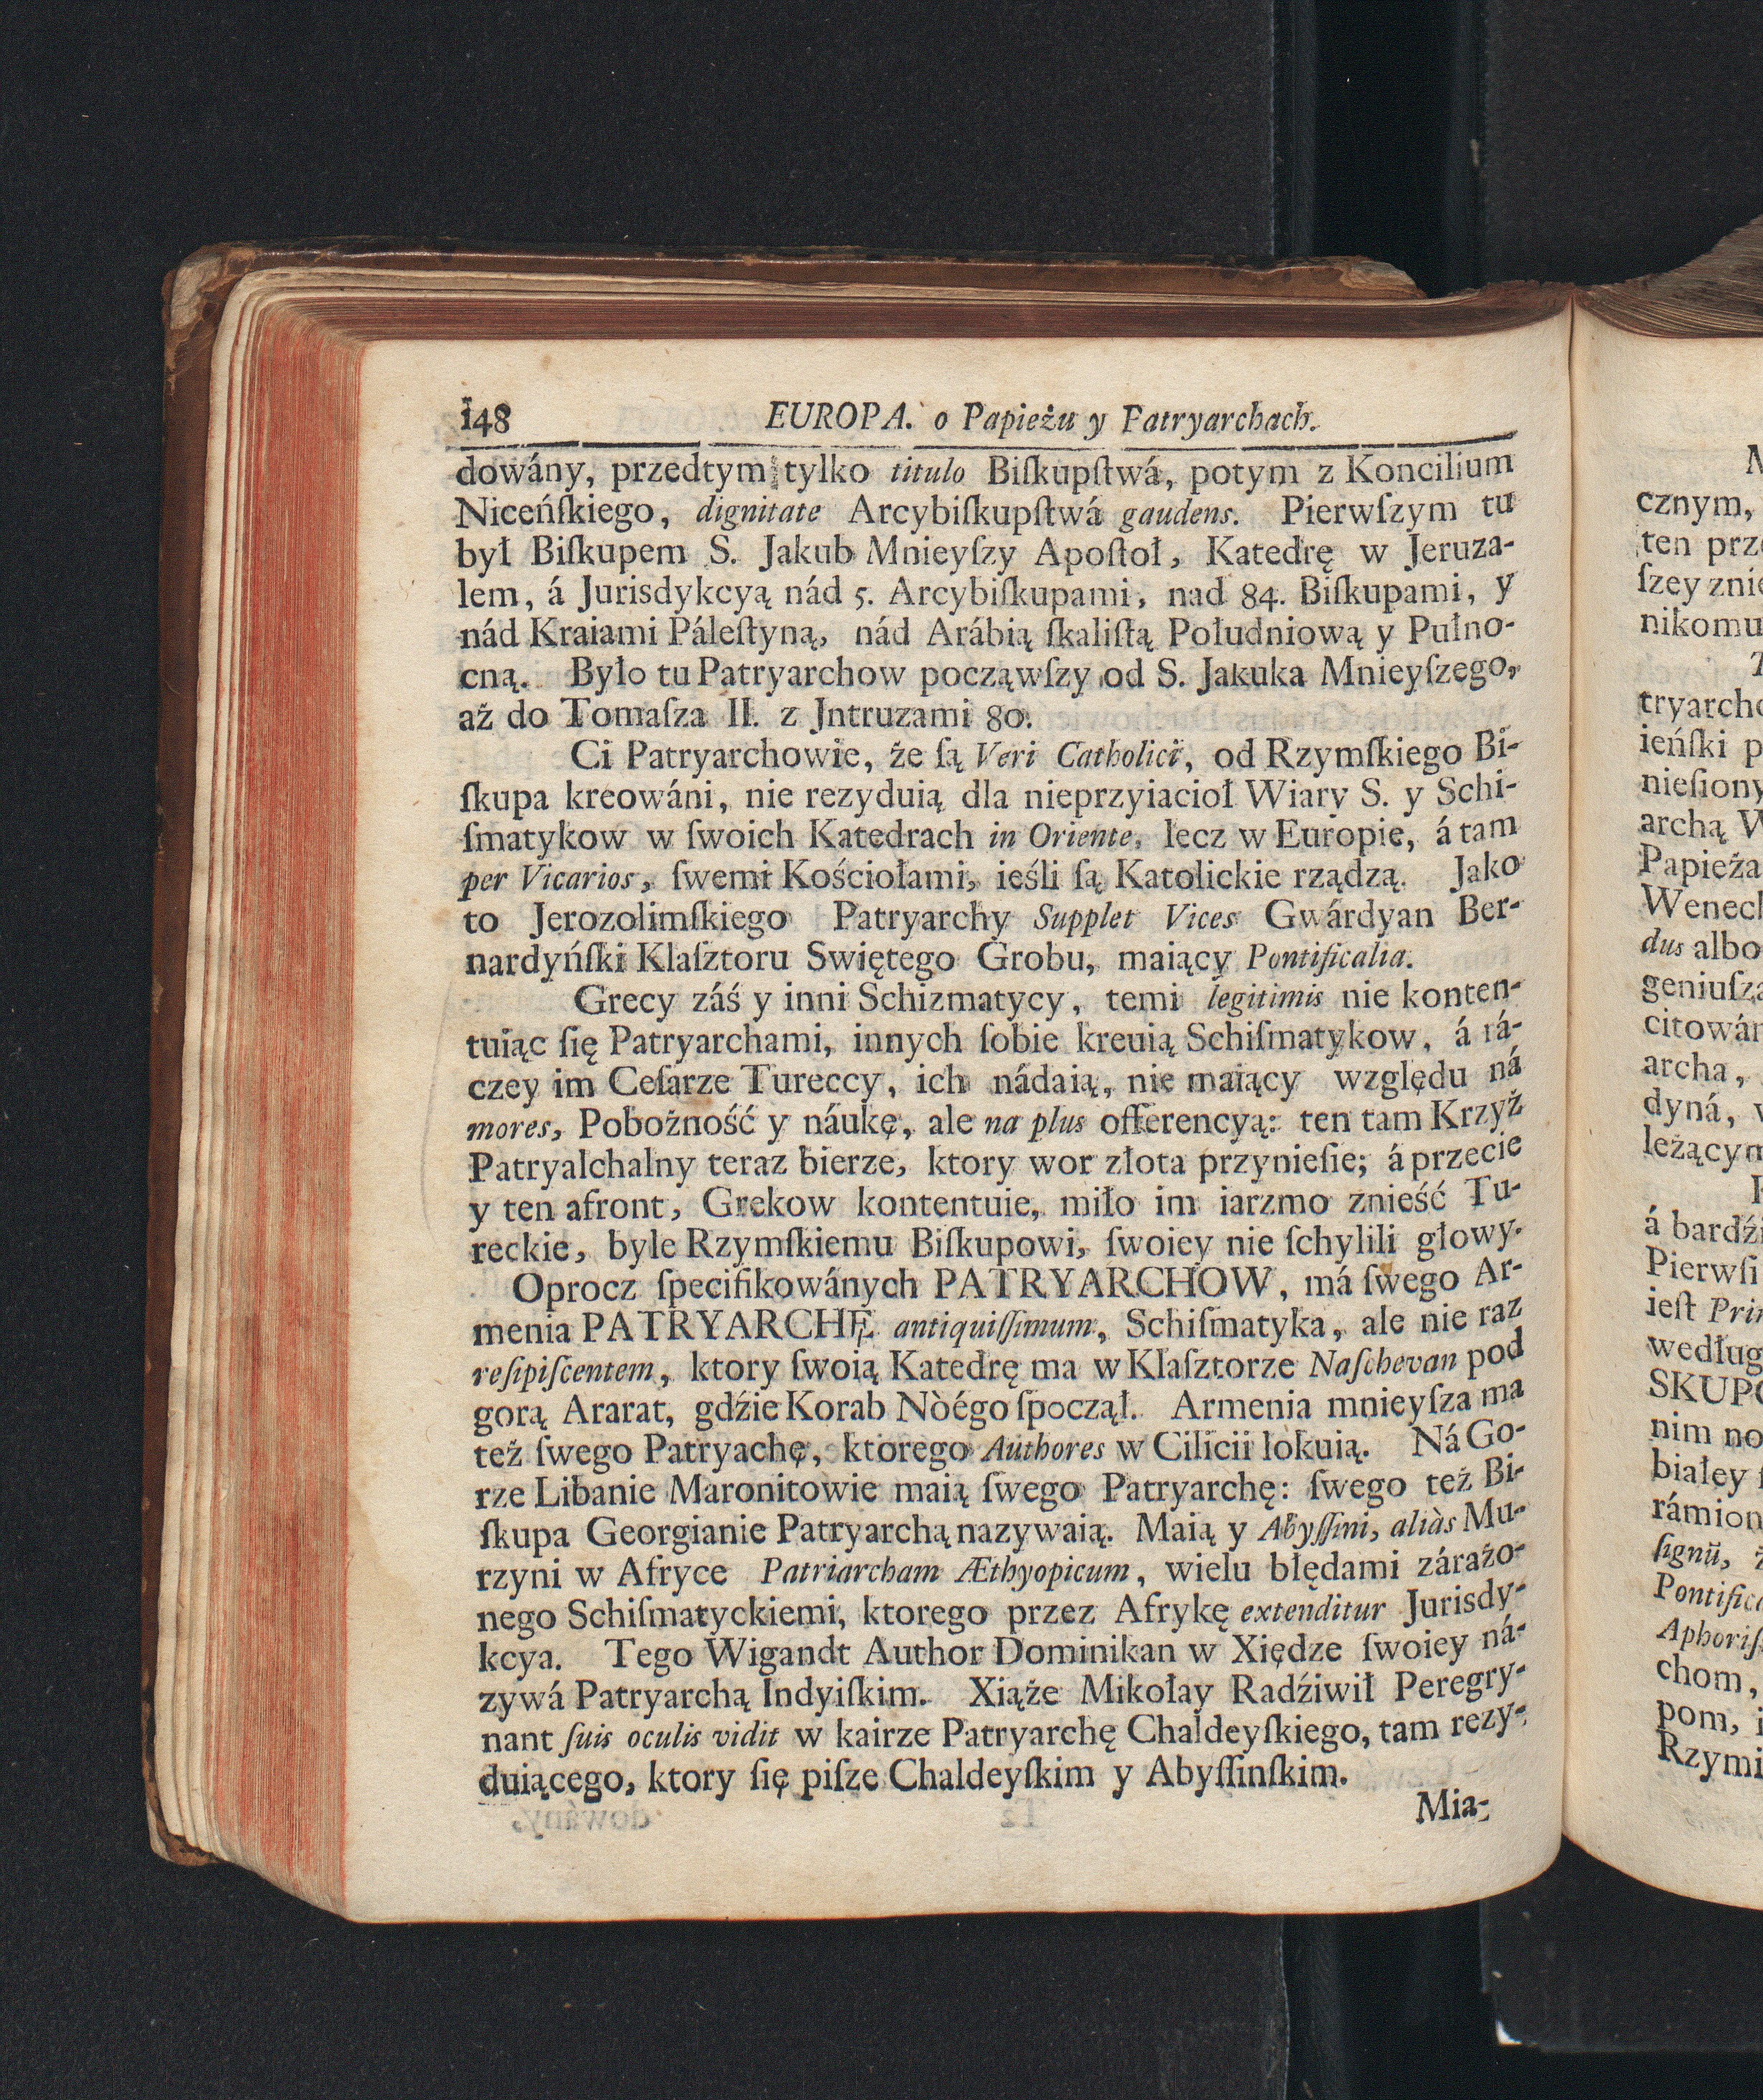 148 EUROPA. o Papieżu y Patryarchach.
dowány, przedtym tylko titulo Biſkupſtwá, potym z Koncilium
Niceńſkiego, dignitate Arcybiſkupſtwá gaudens. Pierwſzym tu
był Biſkupem S. Jakub Mnieyſzy Apoſtoł, Katedrę w Jeruza-
lem, á Jurisdykcyą nád 5. Arcybiſkupami, nad 84. Biſkupami, y
nád Kraiami Páleſtyną, nád Arábią ſkaliſtą Południową y Pułno-
cną. Było tu Patryarchow począwſzy od S. Jakuka Mnieyſzego,
aż do Tomaſza II. z Jntruzami 80.
Ci Patryarchowie, że ſą Veri Catholici, od Rzymſkiego Bi-
ſkupa kreowáni, nie rezyduią dla nieprzyiacioł Wiary S. y Schi-
ſmatykow w ſwoich Katedrach in Oriente, lecz w Europie, á tam
per Vicarios, ſwemi Kościołami, ieśli ſą Katolickie rządzą. Jako
to Jerozolimſkiego Patryarchy Supplet Vices Gwárdyan Ber-
nardyńſki Klaſztoru Swiętego Grobu, maiący Pontificalia.
Grecy záś y inni Schizmatycy, temi legitimis nie konten-
tuiąc ſię Patryarchami, innych ſobie kreuią Schiſmatykow, á rá-
czey im Ceſarze Tureccy, ich nádaią, nie maiący względu ná
mores, Pobożność y náukę, ale na plus offerencyą: ten tam Krzyż
Patryalchalny teraz bierze, ktory wor złota przynieſie; á przecie
y ten afront, Grekow kontentuie, miło im iarzmo znieść Tu-
reckie, byle Rzymſkiemu Biſkupowi, ſwoiey nie ſchylili głowy.
Oprocz ſpecifikowánych PATRYARCHOW, má ſwego Ar-
menia PATRYARCHĘ antiquiſſimum, Schiſmatyka, ale nie raz
reſipiſcentem, ktory ſwoią Katedrę ma w Klaſztorze Naſchevan pod
gorą Ararat, gdźie Korab Nòégo ſpoczął. Armenia mnieyſza ma
też ſwego Patryachę, ktorego Authores w Cilicii lokuią. Ná Go-
rze Libanie Maronitowie maią ſwego Patryarchę: ſwego też Bi-
ſkupa Georgianie Patryarchą nazywaią. Maią y Abyſſini, aliàs Mu-
rzyni w Afryce Patriarcham Æthyopicum, wielu błędami zárażo-
nego Schiſmatyckiemi, ktorego przez Afrykę extenditur Jurisdy-
kcya. Tego Wigandt Author Dominikan w Xiędze ſwoiey ná-
zywá Patryarchą Indyiſkim. Xiąże Mikołay Radźiwił Peregry-
nant ſuis oculis vidit w kairze Patryarchę Chaldeyſkiego, tam rezy-
duiącego, ktory ſię piſze Chaldeyſkim y Abyſſinſkim.
Mia-
cznym,
ſzey
nikomu
ieńſki
archą
Papieża
dus albo
archa,
á
Pierwſi
ieſt
według
nim
białey
ſignii,
chom,
pom,